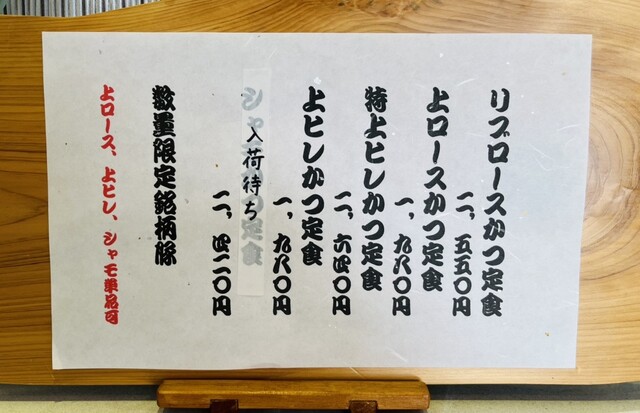 リブロースかつ定食
二、五五〇円
上ロースかつ定食
一、九八〇円
特上ヒレかつ定食
二、六四〇円
上ヒレかつ定食
一、九八〇円
入荷待ち
二、四二〇円
数量限定銘柄豚
上ロース、上ヒレ、シャモ単品可